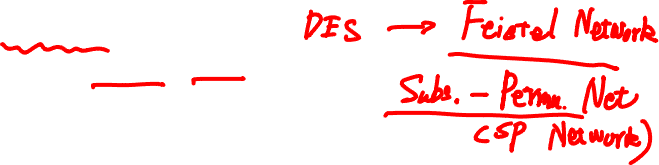 DES → Feistel Network
Subs. - Permu. Net
(SP Network)